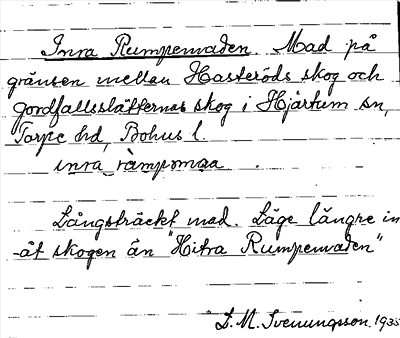 Inra Rumpemaden. Mad på
gränsen mellan Hasteröds skog och
Jordfallsslätternas skog i Hjärtum sn,
Torpe hd, Bohus l.
inra rämpomaa .
Långsträckt mad. Läge längre in
-åt skogen än "Hitra Rumpemaden"
D. M. Svenungsson. 1935